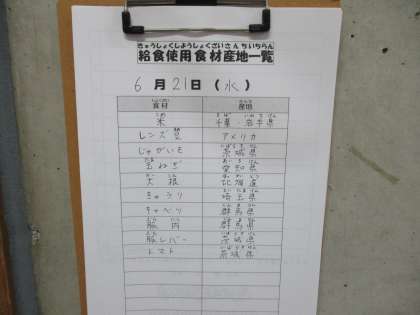 きゅうしょくしようしょくざいさんちいちらん
給食使用食材産地一覧
6月21日(水)
食材 産地
米 千葉・岩手県
レンズ豆 アメリカ
じゃがいも 茨城県
玉ねぎ 愛知県
大根 北海道
きゅうり 埼玉県
キャベツ 群馬県
豚肉 群馬県
豚レバー 茨城県
トマト 茨城県